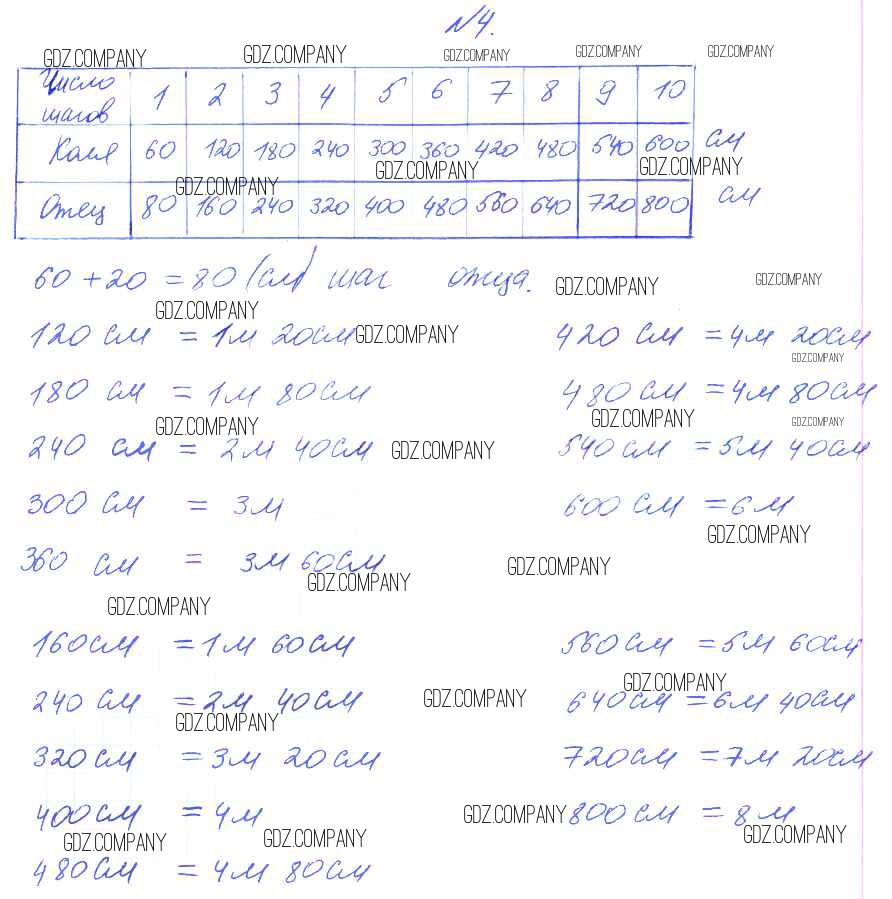 №4.
GDZ.COMPANY GDZ.COMPANY GDZ.COMPANY GDZ.COMPANY GDZ.COMPANY
Число шагов 1 2 3 4 5 6 7 8 9 10
Коля 60 120 180 240 300 360 420 480 540 600 см
GDZ.COMPANY GDZ.COMPANY GDZ.COMPANY
Отец 80 160 240 320 400 480 560 640 720 800 см
60 + 20 = 80 (см) шаг отца.
GDZ.COMPANY GDZ.COMPANY
GDZ.COMPANY
120 см = 1м 20см GDZ.COMPANY 420 см = 4м 20см
GDZ.COMPANY
180 см = 1м 80см 480 см = 4м 80см
GDZ.COMPANY GDZ.COMPANY GDZ.COMPANY
240 см = 2м 40см GDZ.COMPANY 540 см = 5м 40см
300 см = 3м 600 см = 6м
GDZ.COMPANY
360 см = 3м 60см GDZ.COMPANY
GDZ.COMPANY
GDZ.COMPANY
160см = 1м 60см 560см = 5м 60см
GDZ.COMPANY
240 см = 2м 40см GDZ.COMPANY 640см = 6м 40см
GDZ.COMPANY
320см = 3м 20см 720см = 7м 20см
400см = 4м GDZ.COMPANY 800см = 8м
GDZ.COMPANY GDZ.COMPANY GDZ.COMPANY
480см = 4м 80см